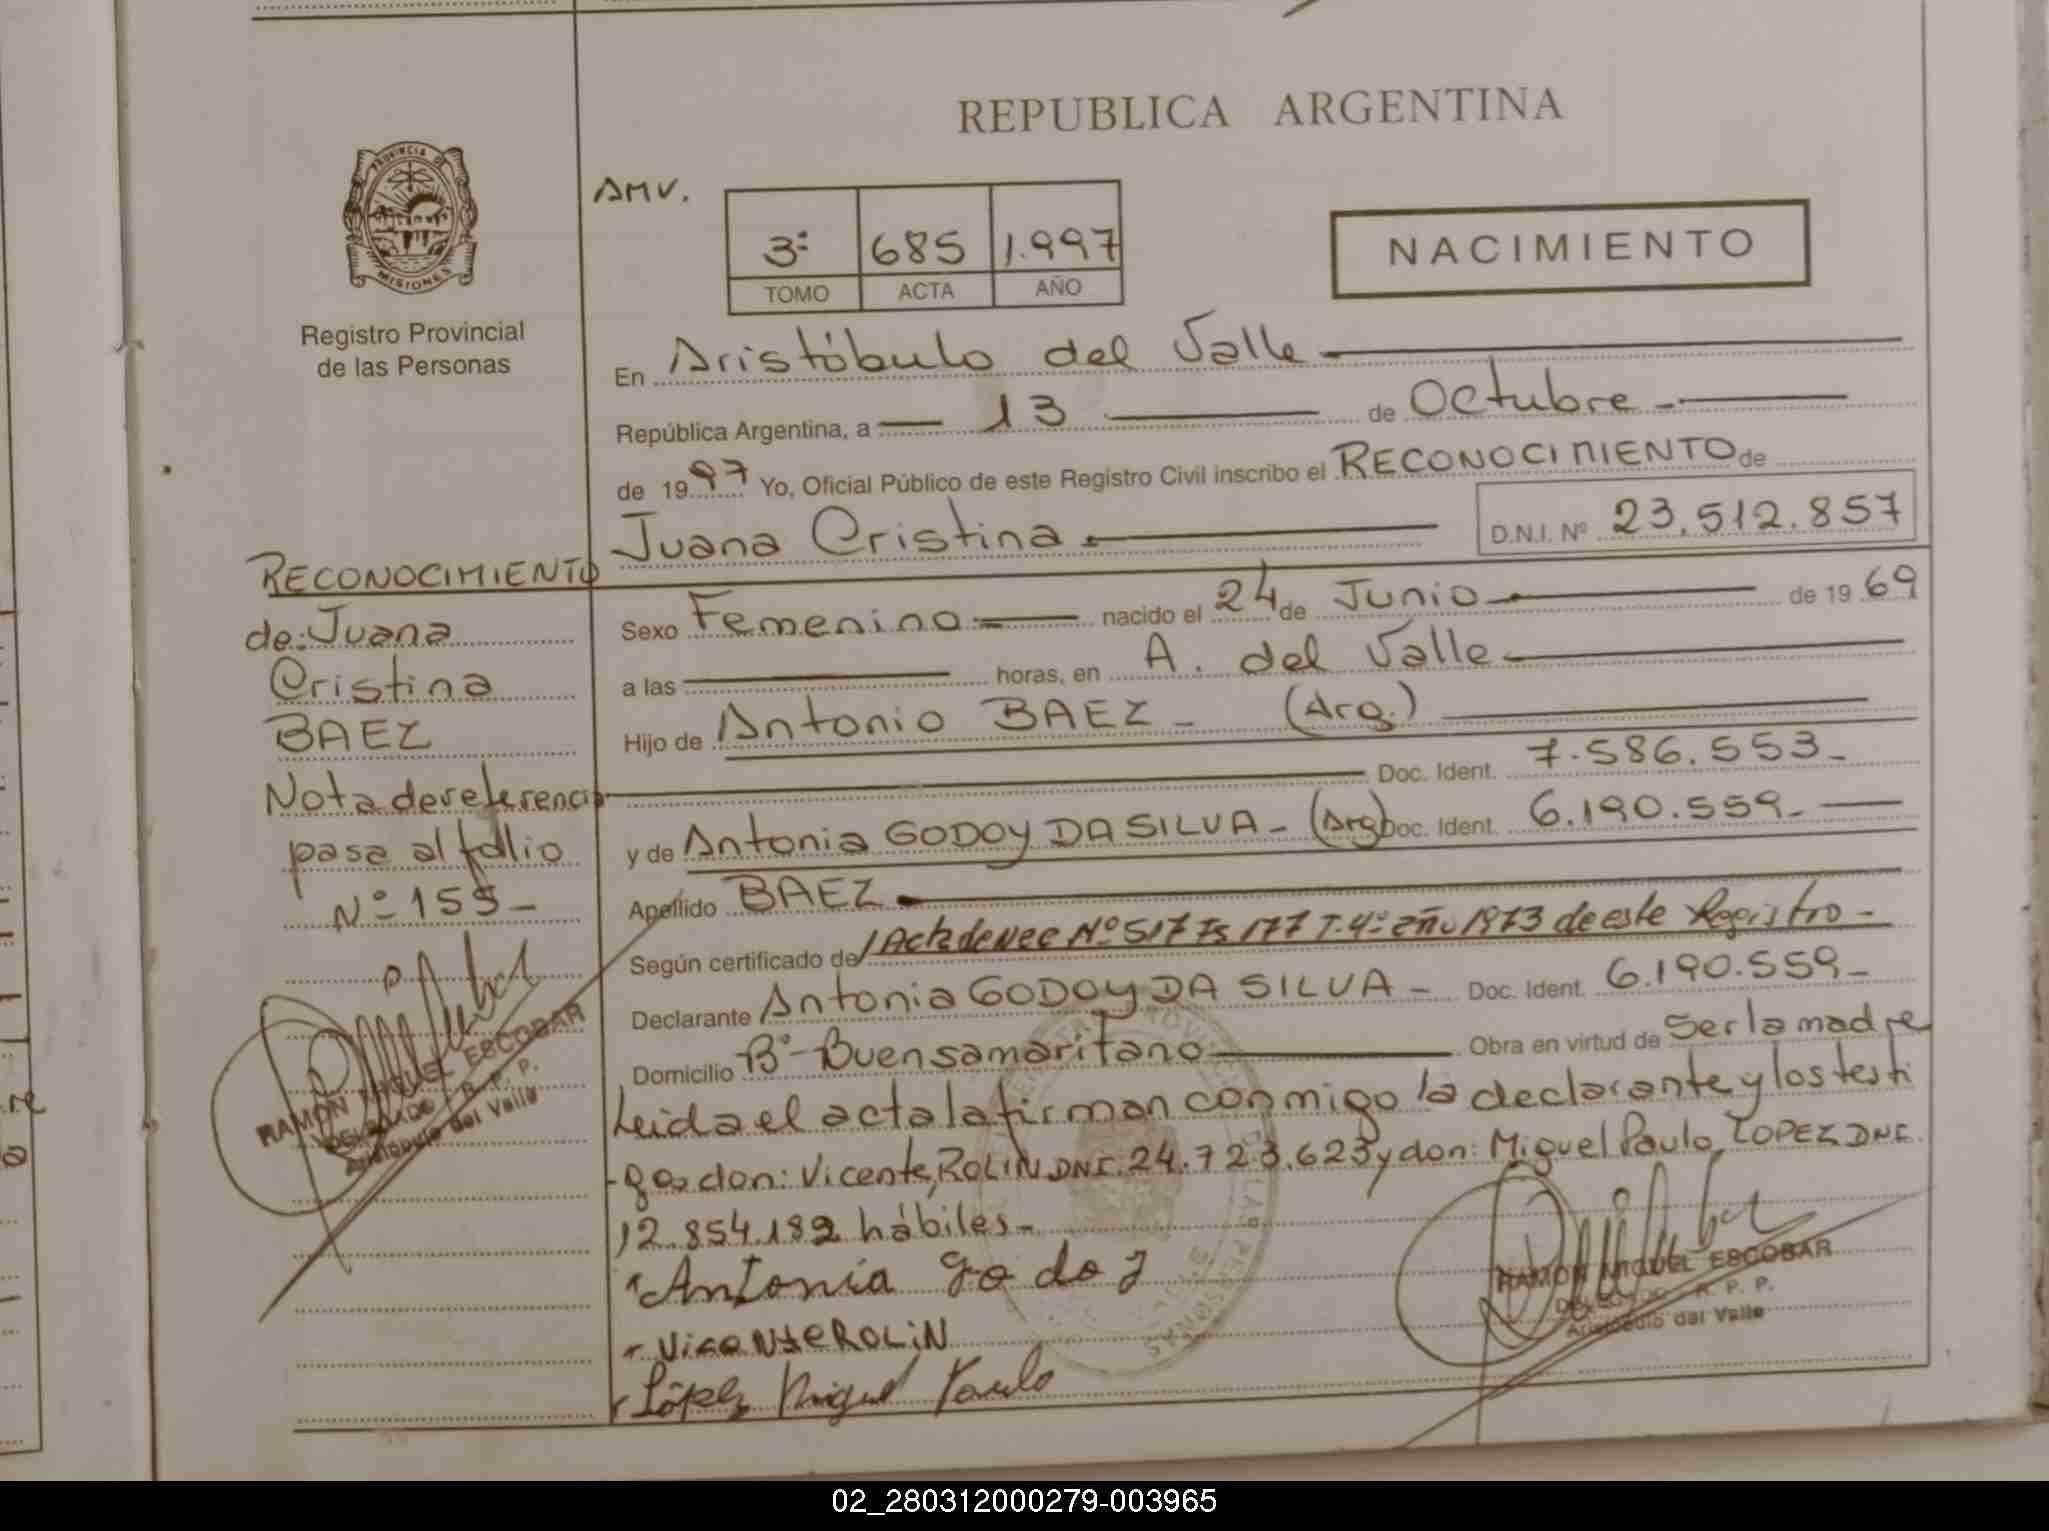 REPUBLICA ARGENTINA
PROVINCIA DE
MISIONES
Registro Provincial
de las Personas
AMV.
3º 685 1.997
TOMO ACTA AÑO
NACIMIENTO
En Aristóbulo del Valle
República Argentina, a 13 de Octubre
de 1997 Yo, Oficial Público de este Registro Civil inscribo el RECONOCIMIENTO de
Juana Cristina D.N.I. Nº 23.512.857
RECONOCIMIENTO
de: Juana
Cristina
BAEZ
Nota de referencia
pasa al folio
Nº 155-
RAMON MIGUEL ESCOBAR
DELEGADO R. P. P.
Aristóbulo del Valle
Sexo Femenino nacido el 24 de Junio de 1969
a las horas, en A. del Valle
Hijo de Antonio BAEZ - (Arg.)
Doc. Ident. 7.586.553-
y de Antonia GODOY DA SILVA - (Arg) Doc. Ident. 6.190.559-
Apellido BAEZ
Según certificado de Acta de Nac Nº 517 Fs 177 T. 4º año 1973 de este Registro -
Declarante Antonia GODOY DA SILVA - Doc. Ident. 6.190.559-
Domicilio Bº- Buen samaritano Obra en virtud de Ser la madre
Leida el acta la firman conmigo la declarante y los testi
-gos don: Vicente, ROLIN DNI. 24.723.623 y don: Miguel Paulo, LOPEZ DNI.
12.854.192 hábiles-
Antonia godoy
VICENTE ROLIN
López Miguel Paulo
RAMON MIGUEL ESCOBAR
DELEGADO R. P. P.
Aristóbulo del Valle
02_280312000279-003965